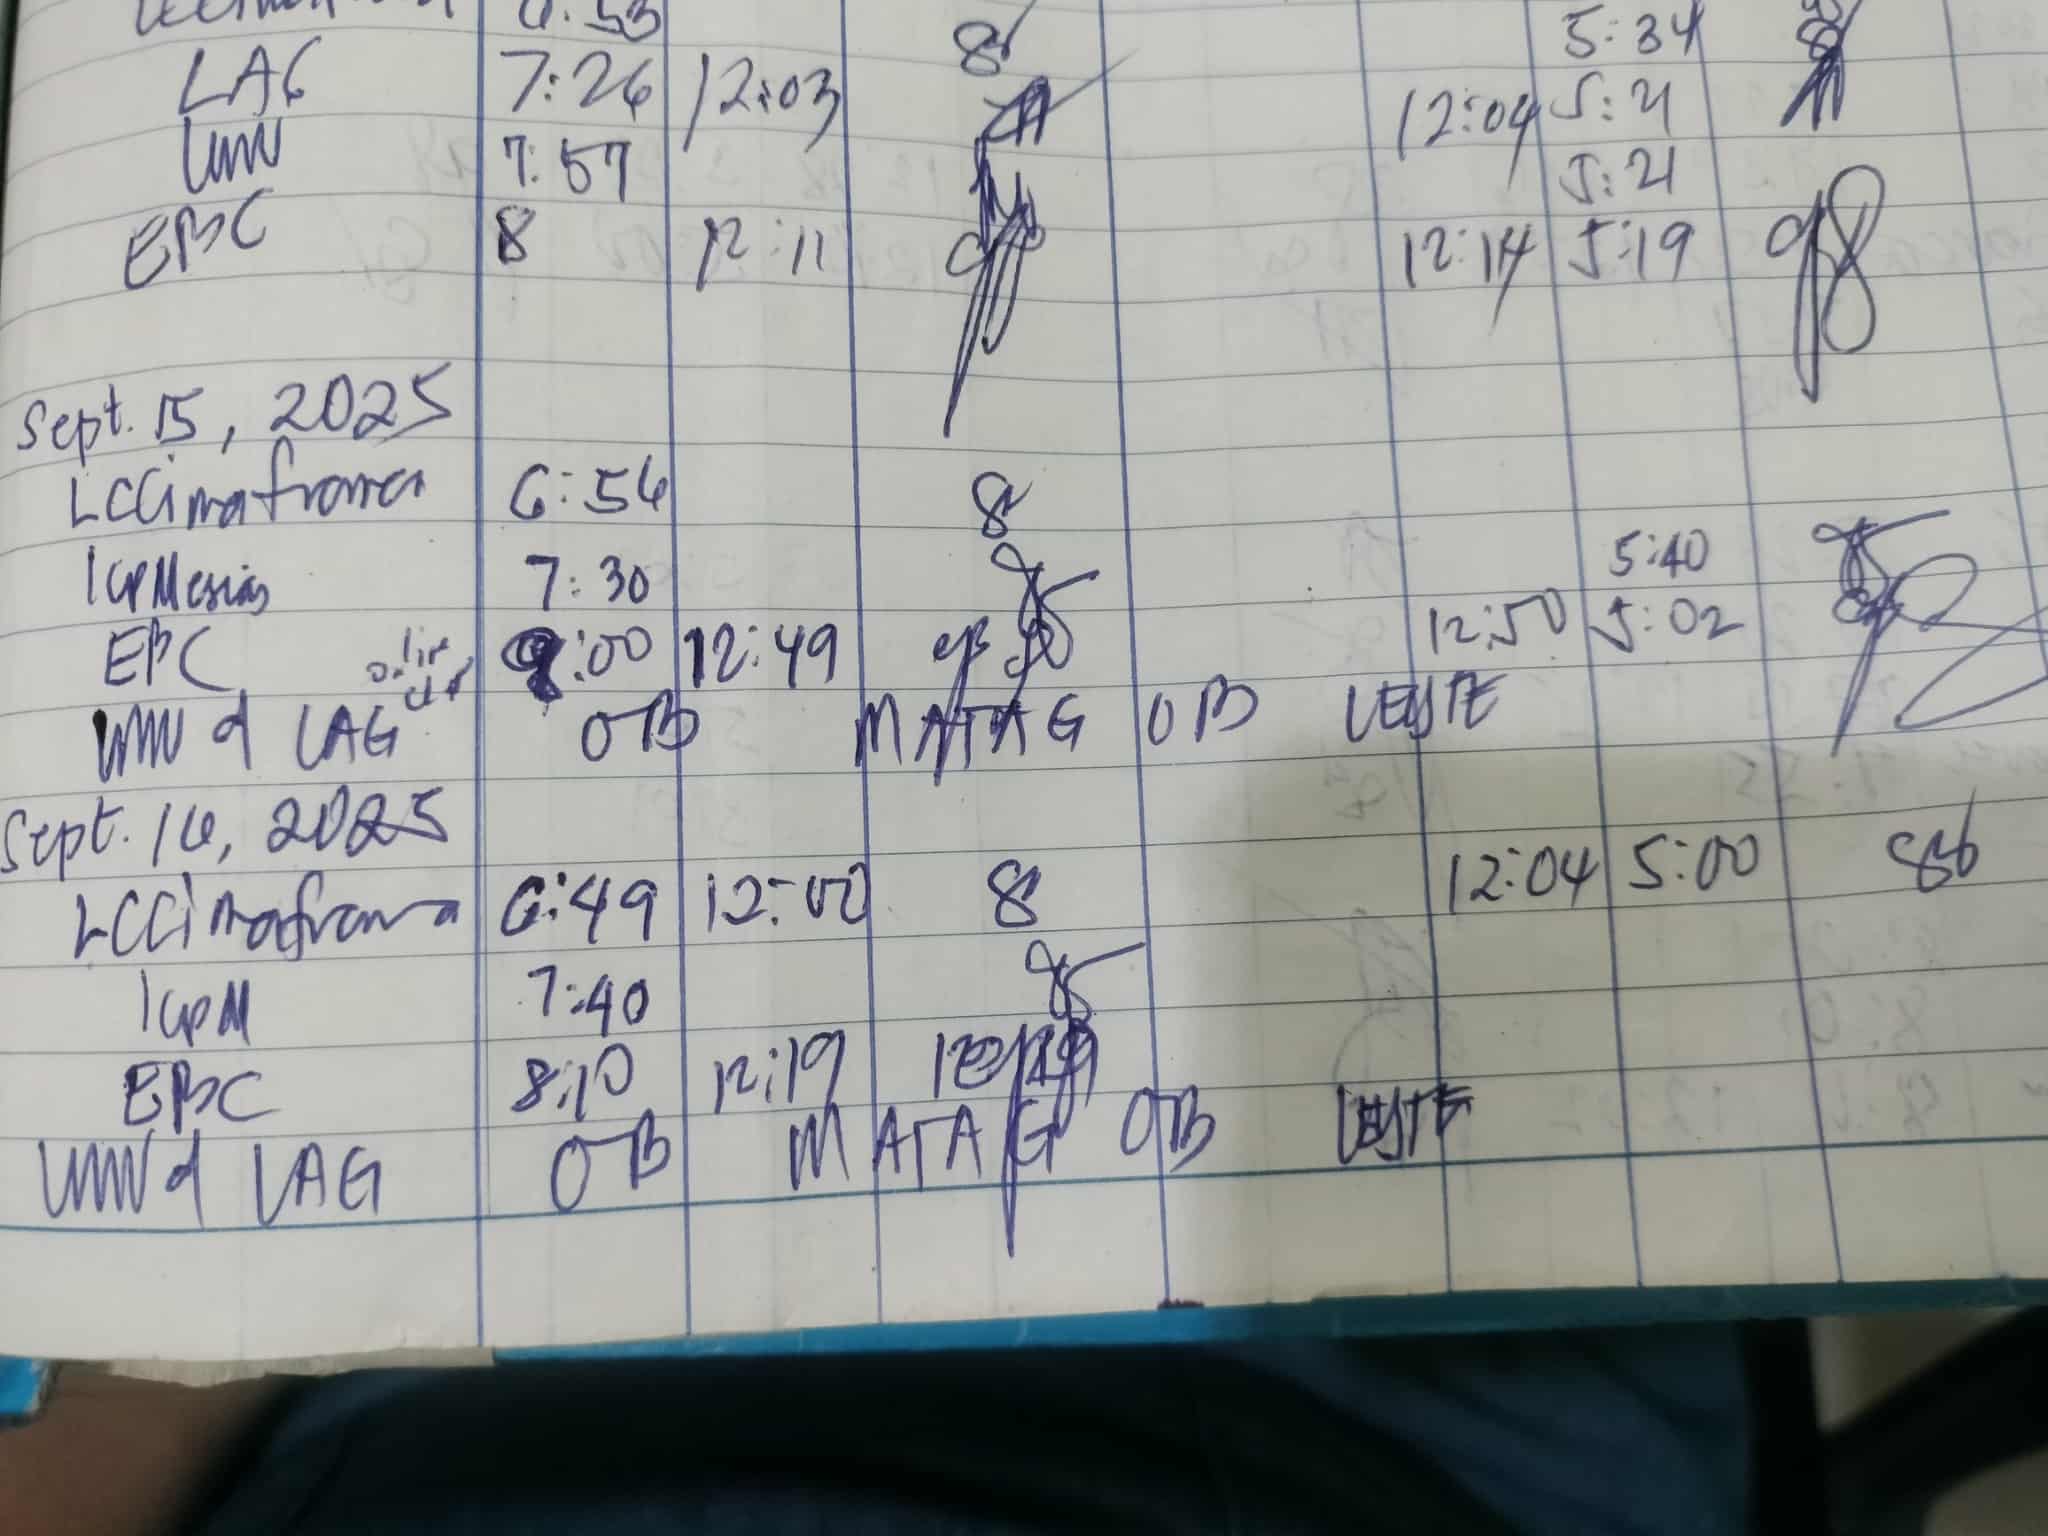 6:53 5:34
LAG 7:26 12:03 12:04 5:21
UMV 7:57 5:21
EBC 8 12:11 12:14 5:19
Sept. 15, 2025
LCCimafranca 6:56
IGPMesias 7:30 5:40
EBC 9:00 12:49 12:50 5:02
UMV & LAG OB MATAG OB LEYTE
Sept. 16, 2025
LCCimafranca 6:49 12:00 12:04 5:00
IGPM 7:40
EBC 8:10 12:19
UMV & LAG OB MATAG OB LEYTE